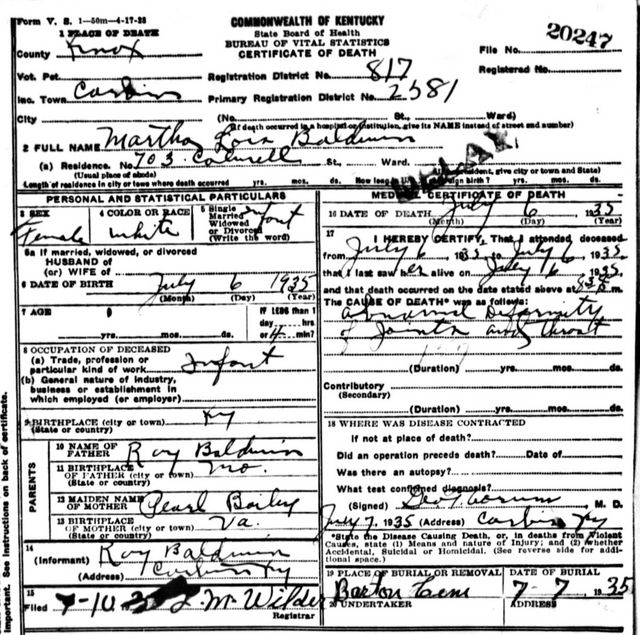 Form V. S. 1—50m—4-17-33
COMMONWEALTH OF KENTUCKY
State Board of Health
BUREAU OF VITAL STATISTICS
CERTIFICATE OF DEATH
File No. 20247
Registered No.
1 PLACE OF DEATH
County Knox
Vot. Pct.
Registration District No. 817
Inc. Town Corbin
Primary Registration District No. 2381
City (No. St., Ward)
(If death occurred in a hospital or institution, give its NAME instead of street and number)
2 FULL NAME Martha Lois Baldwin
(a) Residence. No. 703 St., Ward.
(Usual place of abode) (If nonresident, give city or town and State)
Length of residence in city or town where death occurred yrs. mos. ds. How long in U.S., if of foreign birth? yrs. mos. ds.
PERSONAL AND STATISTICAL PARTICULARS
3 SEX Female
4 COLOR OR RACE White
5 Single Married Widowed or Divorced (Write the word) Infant
5a If married, widowed, or divorced
HUSBAND of
(or) WIFE of
6 DATE OF BIRTH July 6 1935
(Month) (Day) (Year)
7 AGE yrs. mos. ds.
If LESS than 1 day hrs. or 4 min?
8 OCCUPATION OF DECEASED
(a) Trade, profession or particular kind of work Infant
(b) General nature of industry, business or establishment in which employed (or employer)
9 BIRTHPLACE (city or town) Ky
(State or country)
PARENTS
10 NAME OF FATHER Roy Baldwin
11 BIRTHPLACE OF FATHER (city or town) Mo.
(State or country)
12 MAIDEN NAME OF MOTHER Pearl Bailey
13 BIRTHPLACE OF MOTHER (city or town) Va.
(State or country)
14 (Informant) Roy Baldwin
(Address) Corbin Ky
15 Filed 7-10-35 L M Wilder
Registrar
MEDICAL CERTIFICATE OF DEATH
16 DATE OF DEATH July 6 1935
(Month) (Day) (Year)
17 I HEREBY CERTIFY, That I attended deceased
from July 6 1935 to July 6 1935
that I last saw her alive on July 6 1935
and that death occurred on the date stated above at m.
The CAUSE OF DEATH* was as follows:
abnormal Deformity
of Joints and throat
(Duration) yrs. mos. ds.
Contributory
(Secondary)
(Duration) yrs. mos. ds.
18 WHERE WAS DISEASE CONTRACTED
If not at place of death?
Did an operation precede death? Date of
Was there an autopsy?
What test confirmed diagnosis?
(Signed) M. D.
July 7, 1935 (Address) Corbin Ky
*State the Disease Causing Death, or, in deaths from Violent
Causes, state (1) Means and nature of Injury; and (2) Whether
Accidental, Suicidal or Homicidal. (See reverse side for additional space.)
19 PLACE OF BURIAL OR REMOVAL Barton Cem
DATE OF BURIAL 7-7 1935
20 UNDERTAKER
ADDRESS
Important. See instructions on back of certificate.